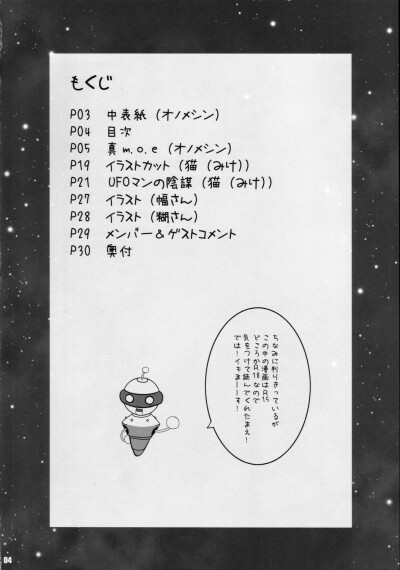 もくじ
P03 中表紙（オノメシン）
P04 目次
P05 真m.o.e（オノメシン）
P19 イラストカット（猫（みけ））
P21 UFOマンの陰謀（猫（みけ））
P27 イラスト（幅さん）
P28 イラスト（糊さん）
P29 メンバー＆ゲストコメント
P30 奥付
ちなみに判りきっているが
この本の漫画はR15
どころかR18なので
気をつけて読んでくれたまえ！
では！イキまーーす！
04